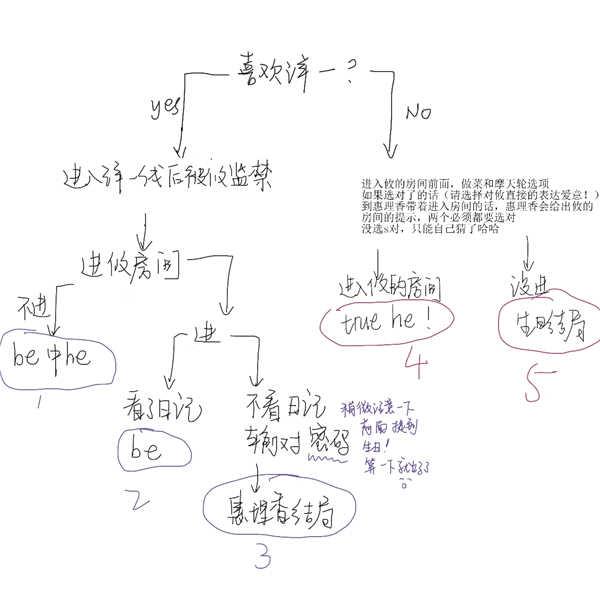 喜欢洋一?
yes
NO
进入洋一线后被攸监禁
进入攸的房间前面，做菜和摩天轮选项
如果选对了的话（请选择对攸直接的表达爱意！）
到惠理香带着进入房间的话，惠理香会给出攸的
房间的提示，两个必须都要选对
没选s对，只能自己猜了哈哈
进攸房间
不进
be中he
进
进入攸的房间
true he!
4
没进
生日结局
5
1
看了日记
be
2
不看日记
输对密码
稍微注意一下
前面提到
生日!
算一下就出了
惠理香结局
3